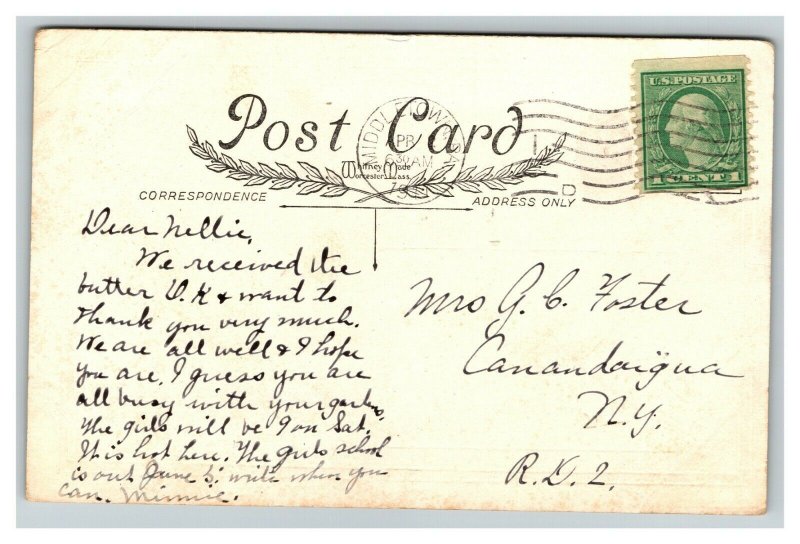 U.S. POSTAGE
1 CENT 1
Post Card
Whitney Made
Worcester, Mass.
MIDDLETOWN
30 AM
CORRESPONDENCE
ADDRESS ONLY
Dear Nellie,
We received the
butter O.K & want to
thank you very much.
We are all well & I hope
you are. I guess you are
all busy with your gardens.
The girls will be 9 on Sat.
It is hot here. The girls school
is out June 5. write when you
can. Minnie.
Mrs G. C. Foster
Canandaigua
N.Y.
R.D. 2.